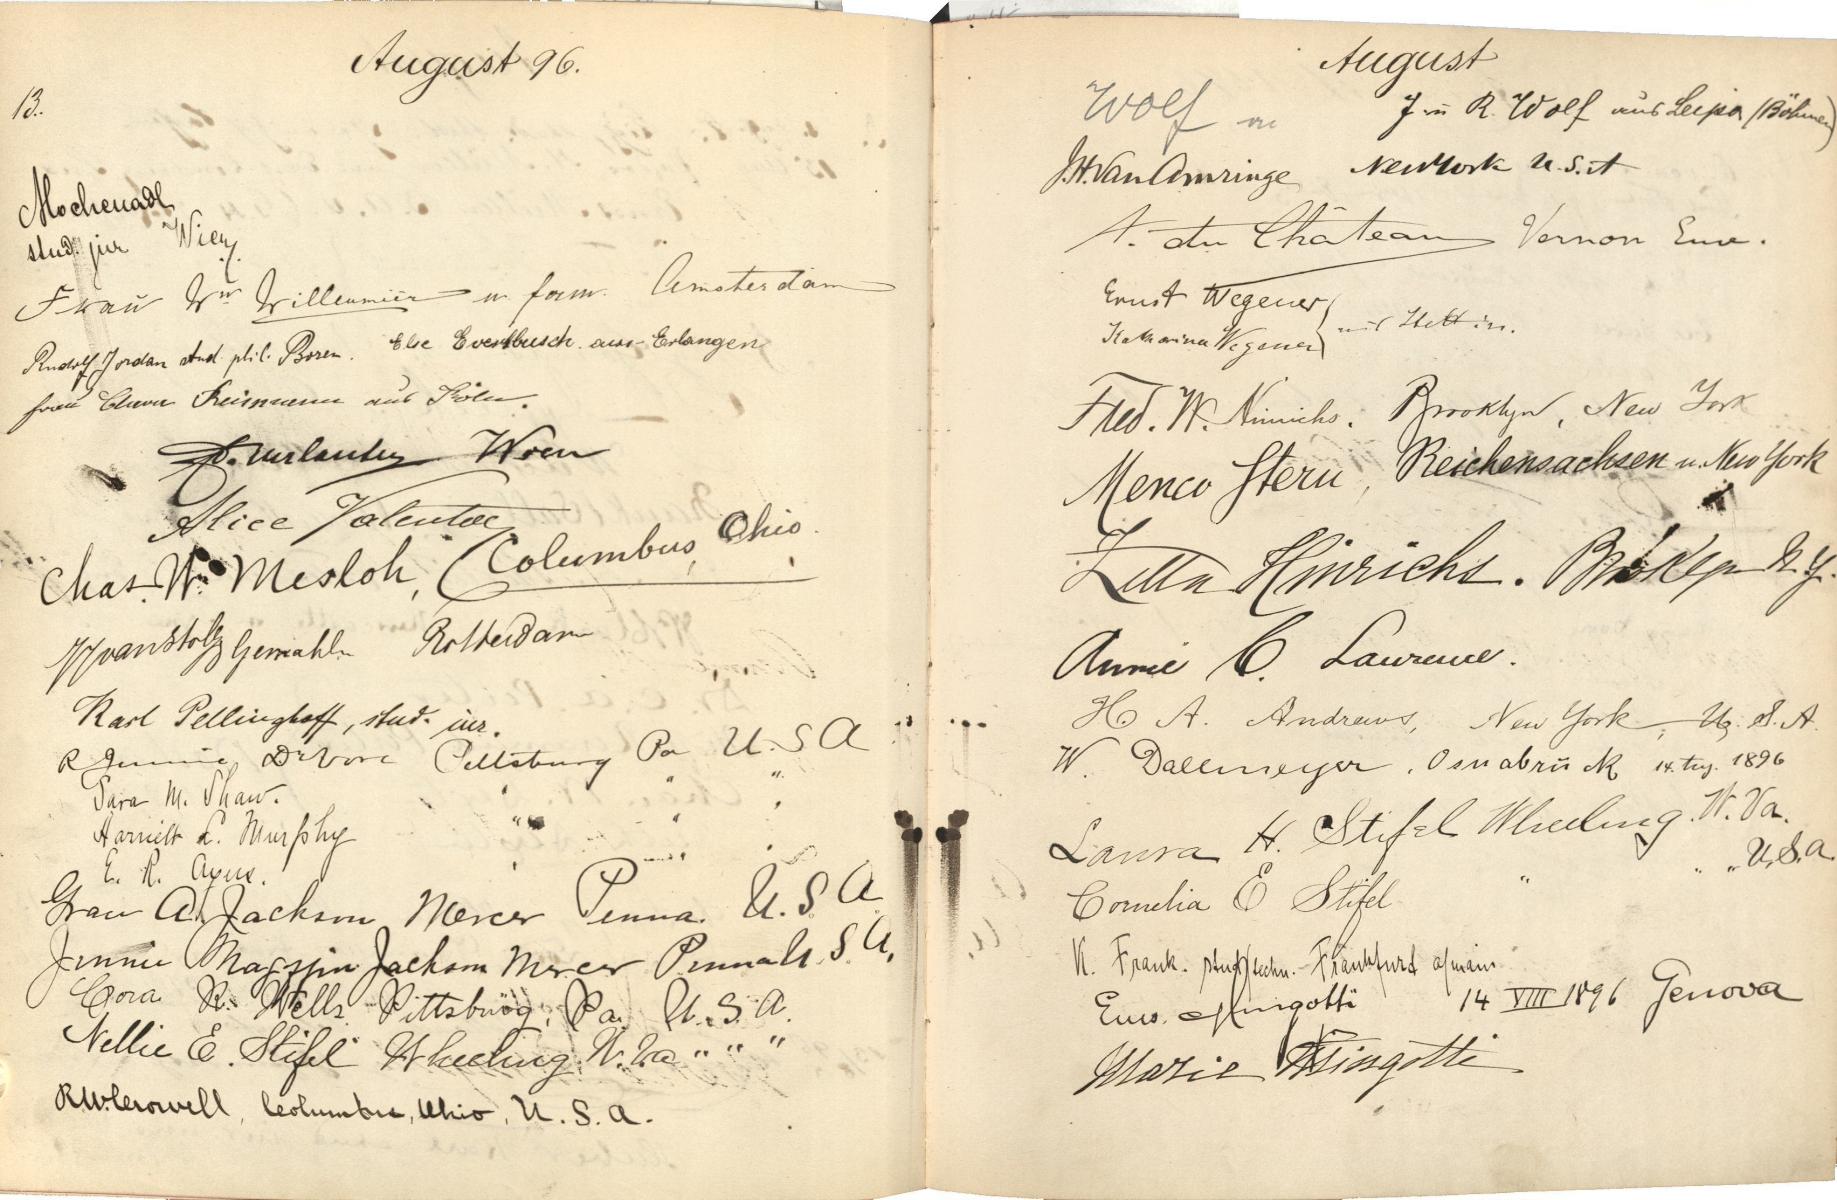 August 96.
13.
stud. jur Wien
Frau Wm Willeumier u. fam. Amsterdam
Rudolf Jordan stud. phil. Bozen. Else Eversbusch aus Erlangen
Frau Reismann aus Köln.
Wien
Alice
Chas. Wm Mesloh, Columbus, Ohio.
Gemahlin Rotterdam
Karl Pellinghoff, stud. iur.
R Jennie DeVore Pittsburg Pa U.S A
Sara M. Shaw. " " "
Harriett L. Murphy " " "
E. R.
A. Jackson Mercer Penna. U.S.A
Jennie Magoffin Jackson Mercer Penna U.S.A.
Cora R. Wells Pittsburg, Pa. U.S.A.
Nellie E. Stifel Wheeling W.Va " " "
R.W. Crowell, Columbus, Ohio, U.S.A.
August
Wolf J u R. Wolf aus Leipa (Böhmen)
J.H. Van Amringe New York U.S.A
A. du Château Vernon Eure.
Ernst Wegener
Katharina Wegener aus Stettin.
Fred. W. Hinrichs. Brooklyn, New York
Menco Stern, Reichensachsen u. New York
Hinrichs. Brooklyn N.Y.
Annie C. Lawrence.
H. A. Andrews, New York, U.S.A.
W. Dallmeyer, Osnabrück 14. Aug. 1896
Laura H. Stifel Wheeling W.Va.
" " U.S.A.
Cornelia E Stifel "
K. Frank. stud. techn. Frankfurt a/main
14 VIII 1896 Genova
Marie